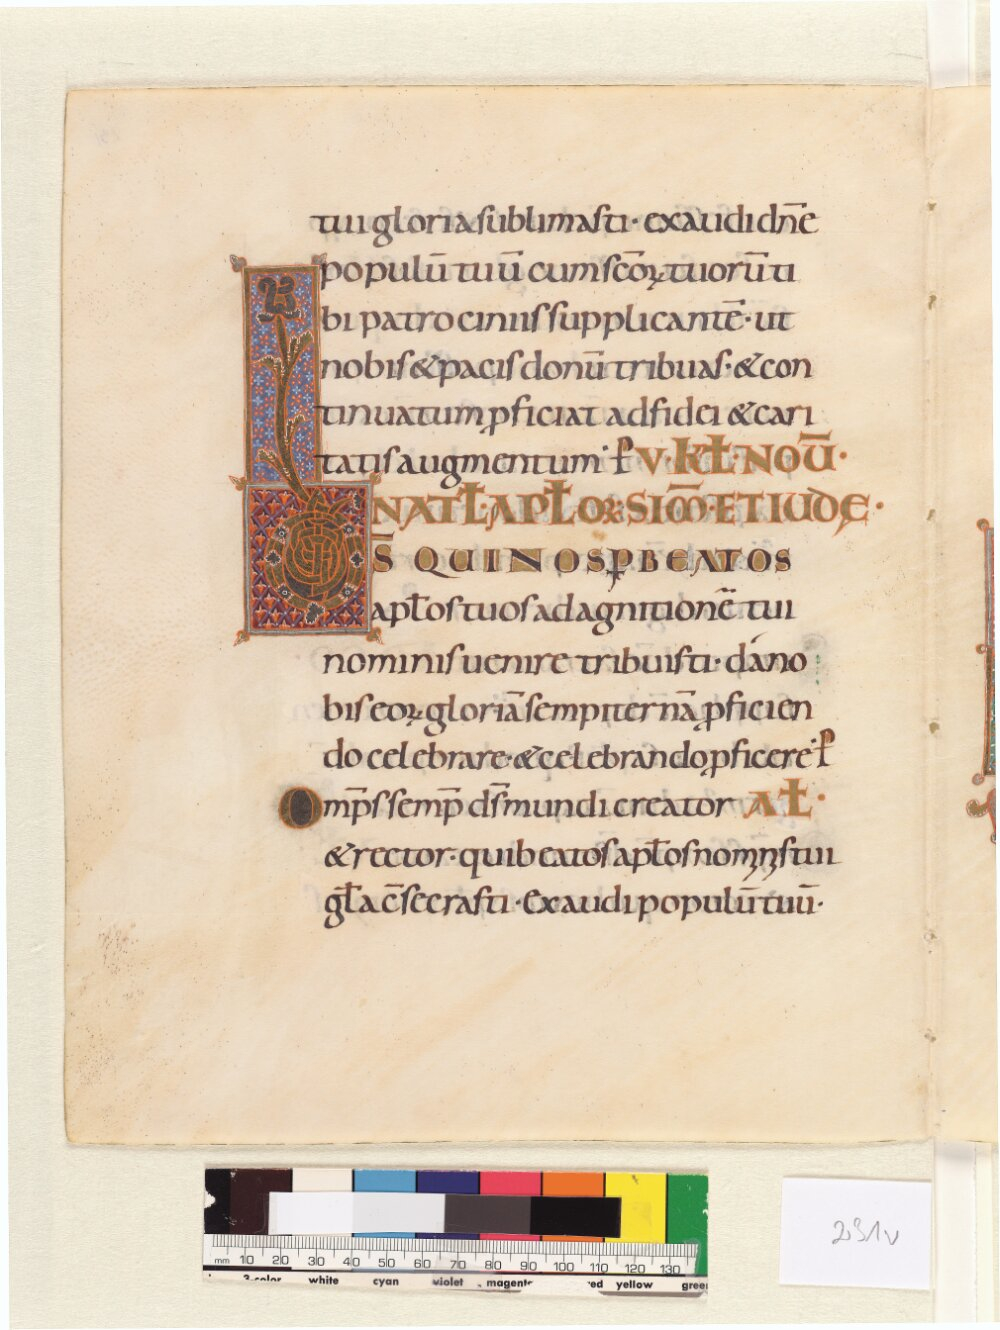 tui gloria sublimasti · exaudi dn̄e
populū tuū cum sc̄oꝝ tuorū ti
bi patrociniis supplicantē · ut
nobis & pacis donū tribuas · & con
tinuatum ꝓficiat ad fidei & cari
tatis augmentum · ꝑ V · KƗ · NOṼ ·
NATƗ · APƗOꝜ · SIM̄ · ET IUDE ·
D S̄ QUI NOS P̱ BEATOS
apƚos tuos ad agnitionē tui
nominis uenire tribuisti · da no
bis eoꝝ gloriā sempiternā ꝓficien
do celebrare · & celebrando ꝓficere · ꝑ
Omp̄s semp̄ ds̄ mundi creator AƗ ·
& rector · qui beatos apƚos nominis tui
gƚa c̄secrasti · Exaudi populū tuū ·
mm 10 20 30 40 50 60 70 80 90 100 110 120 130
3-color white cyan violet magenta red yellow green
231v